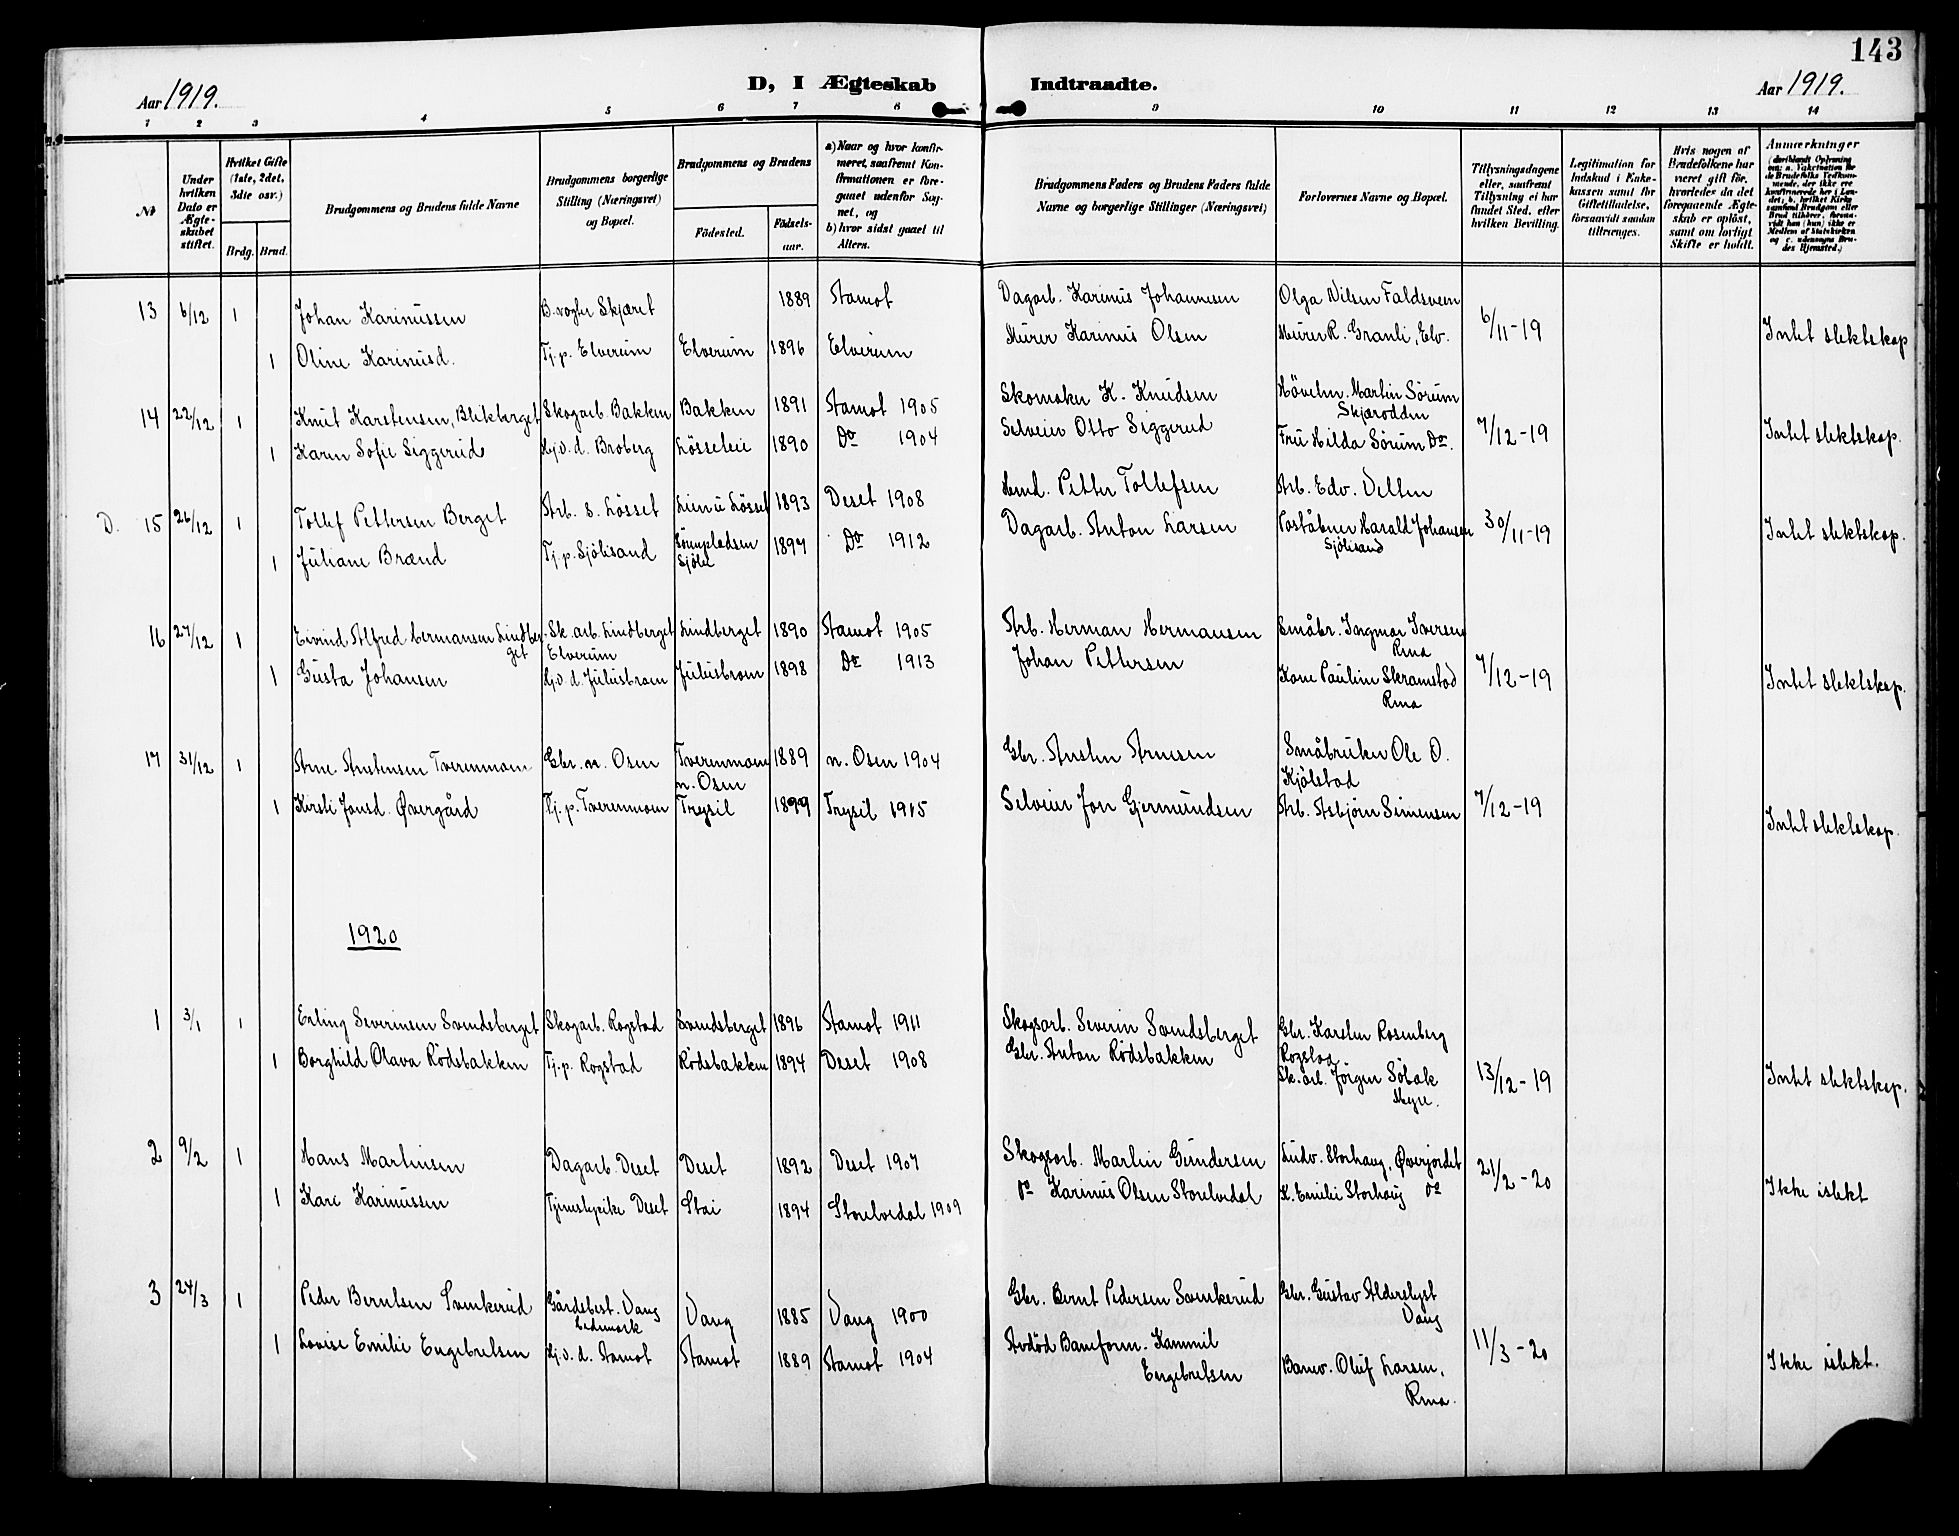 143
Aar 1919.
D, I Ægteskab Indtraadte.
Aar 1919.
1 2 3 4 5 6 7 8 9 10 11 12 13 14
№
Under hvilken Dato er Ægteskabet stiftet.
Hvilket Gifte (1ste, 2det, 3die osv.)
Brdg. Brud.
Brudgommens og Brudens fulde Navne
Brudgommens borgerlige Stilling (Næringsvei) og Bopæl.
Brudgommens og Brudens
Fødested. Fødselsaar.
a) Naar og hvor konfirmeret, saafremt Konfirmationen er foregaaet udenfor Sognet, og
b) hvor sidst gaaet til Alters.
Brudgommens Faders og Brudens Faders fulde Navne og borgerlige Stillinger (Næringsvei)
Forlovernes Navne og Bopæl.
Tillysningsdagene eller, saafremt Tillysning ei har fundet Sted, efter hvilken Bevilling.
Legitimation for Indskud i Enkekassen samt for Giftetilladelse, forsaavidt saadan tiltrænges.
Hvis nogen af Brudefolkene har været gift før, hvorledes da det foregaaende Ægteskab er opløst, samt om lovligt Skifte er holdt.
Anmærkninger
13 6/12 1 Johan Karinussen B.vogter Skjæret 1889 Stamot Dagarb. Karinus Johannesen Olga Nilsen Faldsveen 6/11-19 Intet slektskap
1 Oline Karinusd. Tj.p. Elverum Elverum 1896 Elverum Murer Karinus Olsen Murer R. Granli, Elv.
14 22/12 1 Knut Karstensen, Blikberget Skogarb. Bakken Bakken 1891 Stamot 1905 Skomaker K. Knudsen Høvelm. Martin Sørum Skjærodden 7/12-19 Intet slektskap.
1 Karen Sofie Siggerud Hj.v.d. Broberg Løsseteie 1890 Do 1904 Selveier Otto Siggerud Fru Hilda Sørum Do.
D. 15 26/12 1 Tollef Pettersen Berget Arb. s. Løsset Lien u Løsset 1893 Deset 1908 Hmd. Petter Tollefsen Arb. Edv. Velten 30/11-19 Intet slektskap.
1 Juliane Brænd Tj.p. Sjølisand Sjøli 1897 Do 1912 Dagarb. Anton Larsen Poståbner Harald Johansen Sjølisand
16 27/12 1 Eivind Alfred Hermansen Lindberget Sk.arb. Lindberget Elverum Lindberget 1890 Stamot 1905 Arb. Herman Hermansen Småbr. Ingmar Iversen Rena 7/12-19 Intet slektskap.
1 Gusta Johansen Hj.v.d. Julusbrom Julusbrom 1898 Do 1913 Johan Pettersen Kone Pauline Skramstad Rena
17 31/12 1 Arne Austensen Tverenmoen Gbr. n. Osen Tverenmoen n. Osen 1889 n. Osen 1904 Gbr. Austen Arnesen Småbruker Ole O. Kjølstad 7/12-19 Intet slektskap.
1 Kirsti Jonsd. Øvergård Tj.p. Tverenmoen Trysil 1899 Trysil 1915 Selveier Jon Gjermundsen Arb. Asbjørn Simensen
1920
1 3/1 1 Erling Severinsen Svendsberget Skogarb. Rogstad Svendsberget 1896 Stamot 1911 Skogsarb. Severin Svendsberget Gbr. Karsten Rosenberg Rogstad 13/12-19 Intet slektskap.
1 Borghild Olava Rödsbakken Tj.p. Rogstad Rödsbakken 1894 Deset 1908 Gbr. Anton Rödsbakken Sk.arb. Jørgen Søbak Myre.
2 9/2 1 Hans Martinsen Dagarb. Deset Deset 1892 Deset 1907 Skogsarb. Martin Gundersen Ludv. Storhaug, Øverjordet 21/2-20 Ikke islekt
1 Kare Karinussen Tjenestepike Deset Stai 1894 Storelvedal 1909 Do Karinus Olsen Storelvedal K. Emilie Storhaug Do
3 24/3 1 Peder Berntsen Svenkerud Gårdsbest. Vang Hedemark Vang 1885 Vang 1900 Gbr. Bernt Pedersen Svenkerud Gbr. Gustav Alderslyst Vang 11/3-20 Ikke islekt.
1 Lovise Emilie Engebretsen Hj.v.d. Stamot Stamot 1889 Stamot 1904 Avdöd Baneform. Kammil Engebretsen Banev. Oluf Larsen, Rena.